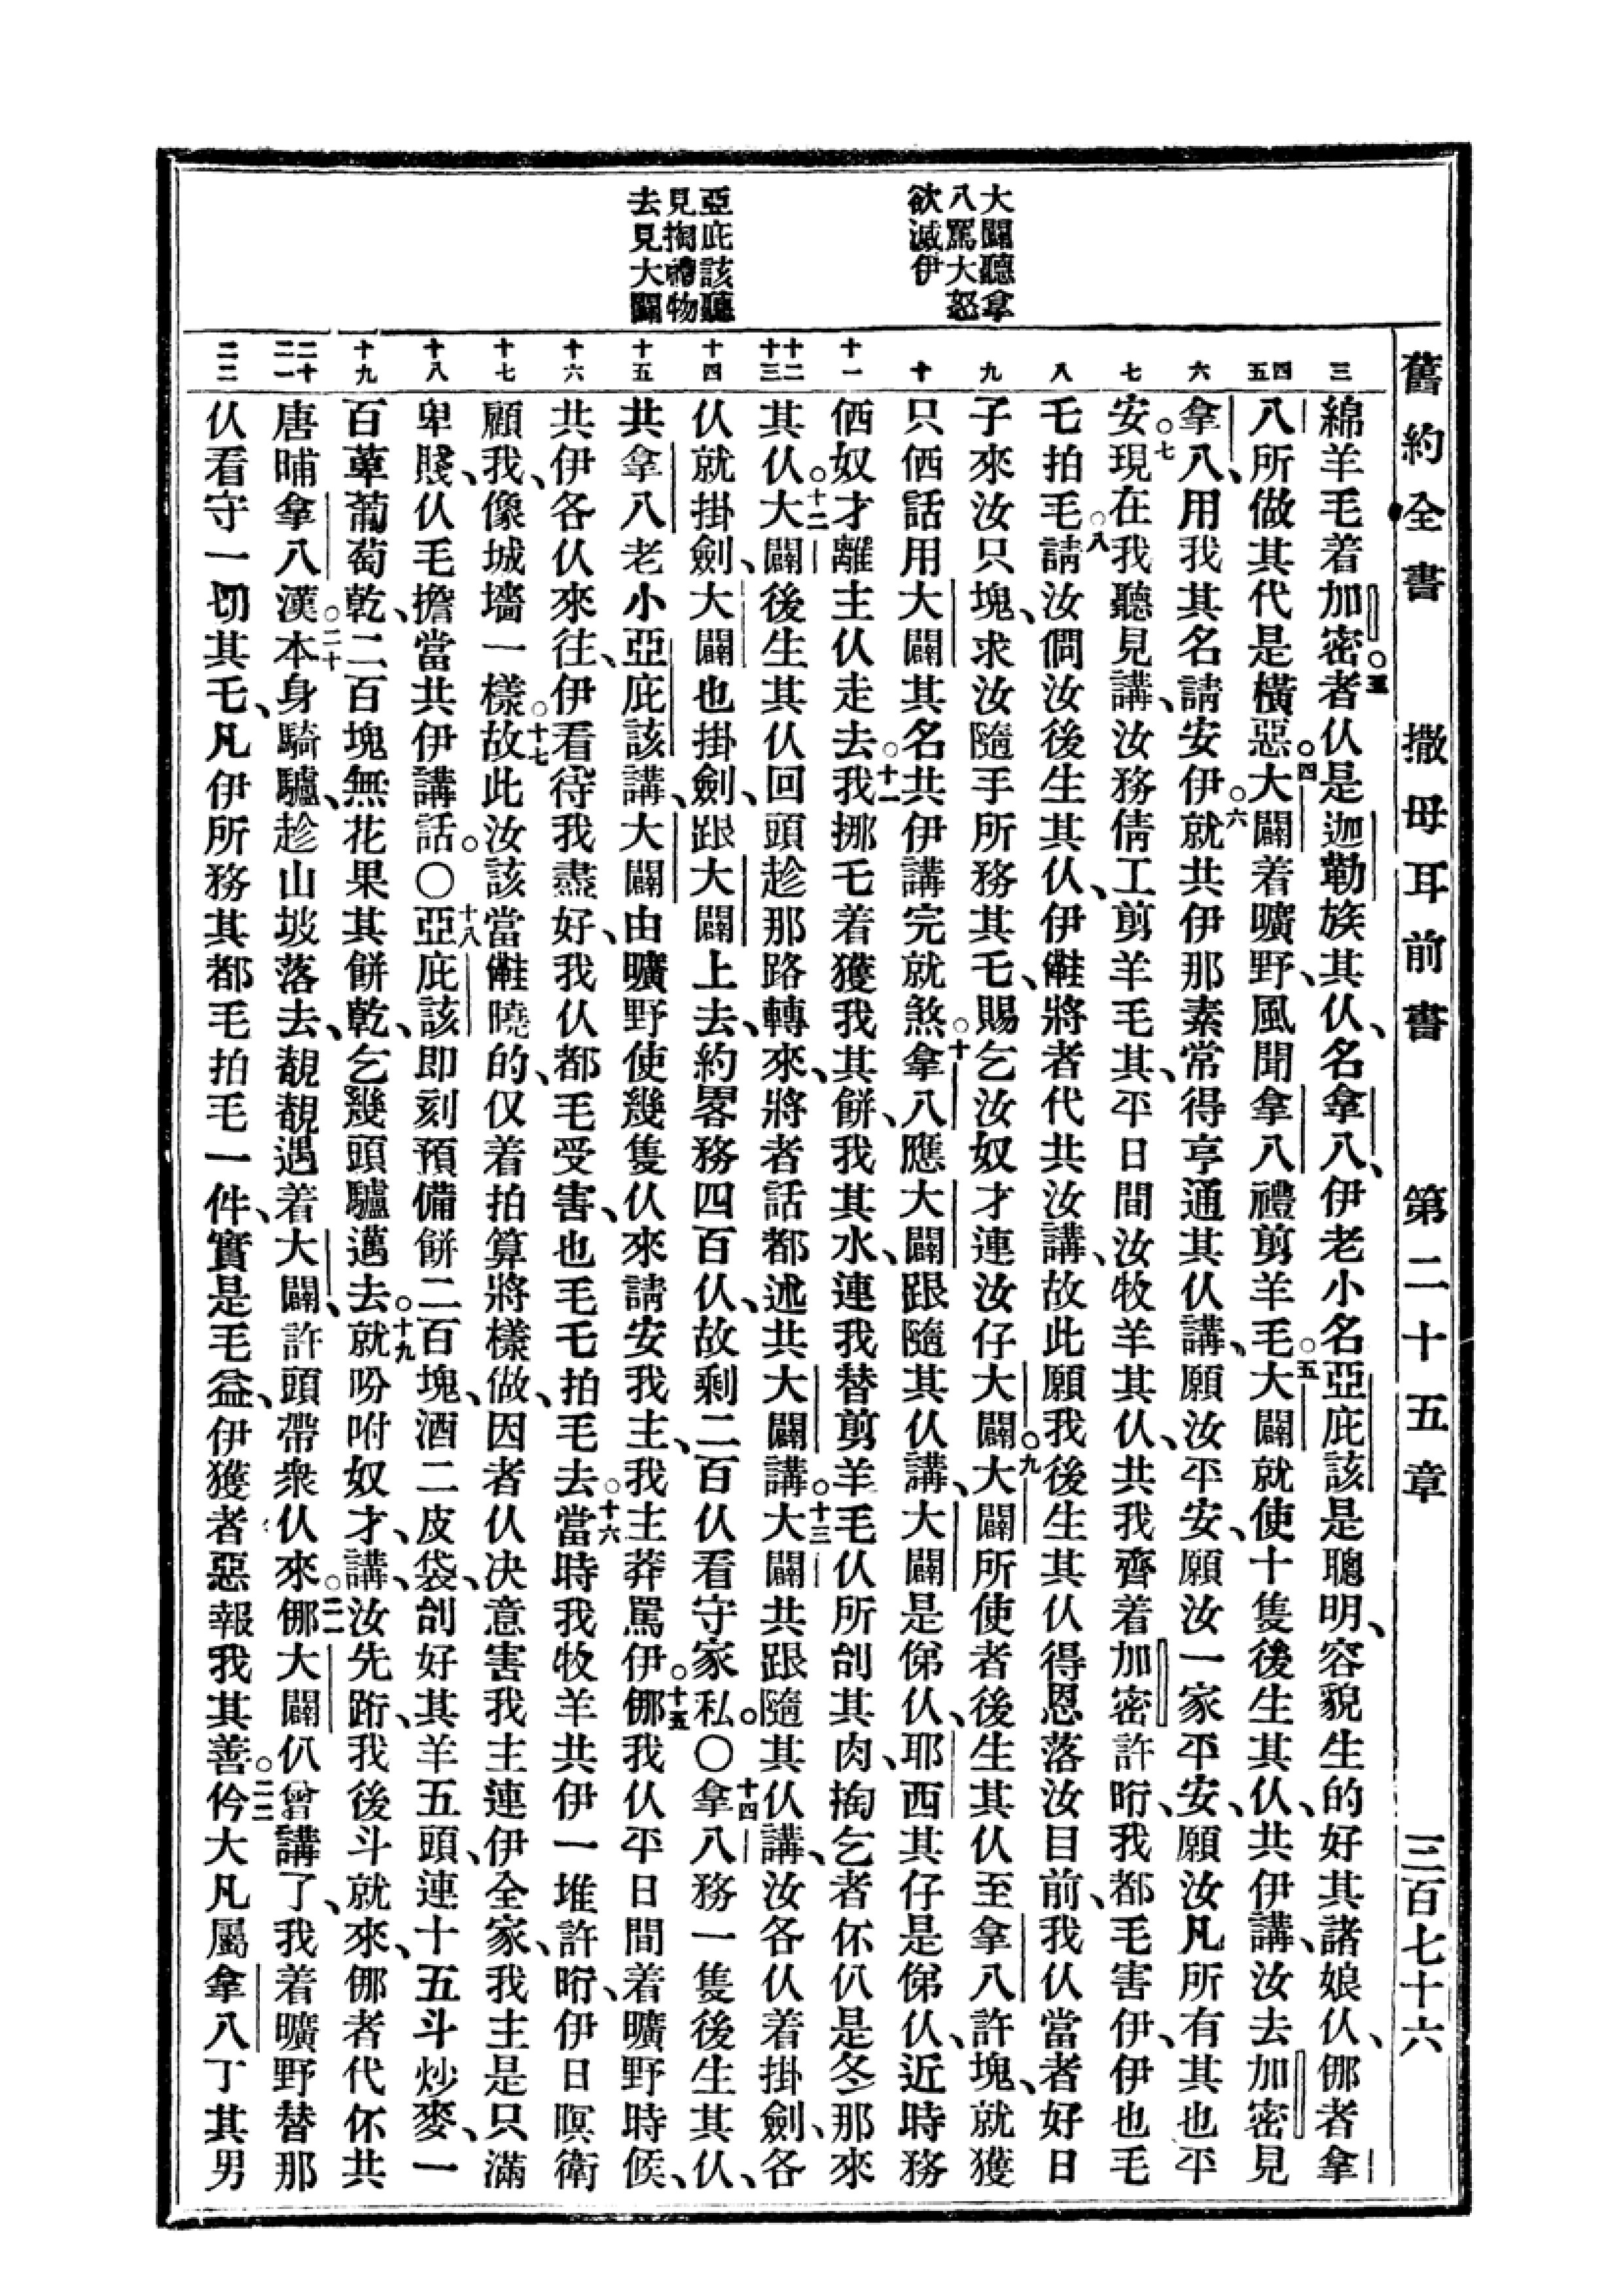 舊約全書　撒母耳前書　第二十五章　三百七十六
大闢聽拿
八罵大怒
欲滅伊
亞庇該聽
見掏禮物
去見大闢
三
四五
六
七
八
九
十
十一
十二十三
十四
十五
十六
十七
十八
十九
二十二一
二二
綿羊毛着加密者仈是迦勒族其仈、名拿八、伊老小名亞庇該是聰明、容貌生的好其諸娘仈、㑚者拿
八所做其代是橫惡。四大闢着曠野、風聞拿八禮剪羊毛。五大闢就使十隻後生其仈、共伊講、汝去加密見
拿八、用我其名請安伊。六就共伊那素常得亨通其仈講、願汝平安、願汝一家平安、願汝凡所有其也平
安。七現在我聽見講、汝務倩工剪羊毛其、平日間汝牧羊其仈、共我齊着加密許𰋀、我都毛害伊、伊也毛
乇拍毛。八請汝問汝後生其仈、伊𪜶將者代共汝講、故此願我後生其仈得恩落汝目前、我仈當者好日
子來汝只塊、求汝隨手所務其乇、賜乞汝奴才連汝仔大闢。九大闢所使者後生其仈至拿八許塊、就獲
只𠍲話用大闢其名共伊講完就煞。十拿八應大闢跟隨其仈講、大闢是俤仈、耶西其仔是俤仈、近時務
𠍲奴才離主仈走去。十一我挪乇着獲我其餅、我其水、連我替剪羊毛仈所刣其肉、掏乞者伓仈是冬那來
其仈。十二大闢後生其仈回頭趁那路轉來、將者話都述共大闢講。十三大闢共跟隨其仈講、汝各仈着掛劍、各
仈就掛劍、大闢也掛劍、跟大闢上去、約畧務四百仈、故剩二百仈看守家私。〇十四拿八務一隻後生其仈、
共拿八老小亞庇該講、大闢由曠野使幾隻仈來請安我主、我主莽罵伊。十五㑚我仈平日間着曠野時候、
共伊各仈來往、伊看待我盡好、我仈都毛受害、也毛乇拍毛去。十六當時我牧羊共伊一堆許𰋀、伊日暝衛
顧我、像城墻一樣。十七故此汝該當𪜶曉的、仅着拍算將樣做、因者仈决意害我主連伊全家、我主是只滿
卑賤、仈毛擔當共伊講話。〇十八亞庇該即刻預備餅二百塊、酒二皮袋、刣好其羊五頭、連十五斗炒麥、一
百葷葡萄乾、二百塊無花果其餅乾、乞幾頭驢邁去。十九就吩咐奴才、講、汝先跡、我後斗就來、㑚者代伓共
唐晡拿八漢。二十本身騎驢、趁山坡落去、覩覩遇着大闢、許頭帶衆仈來。二一㑚大闢仈曾講了、我着曠野替那
仈看守一切其乇、凡伊所務其都毛拍毛一件、實是毛益、伊獲者惡報我其善。二二仱大凡屬拿八丁其男